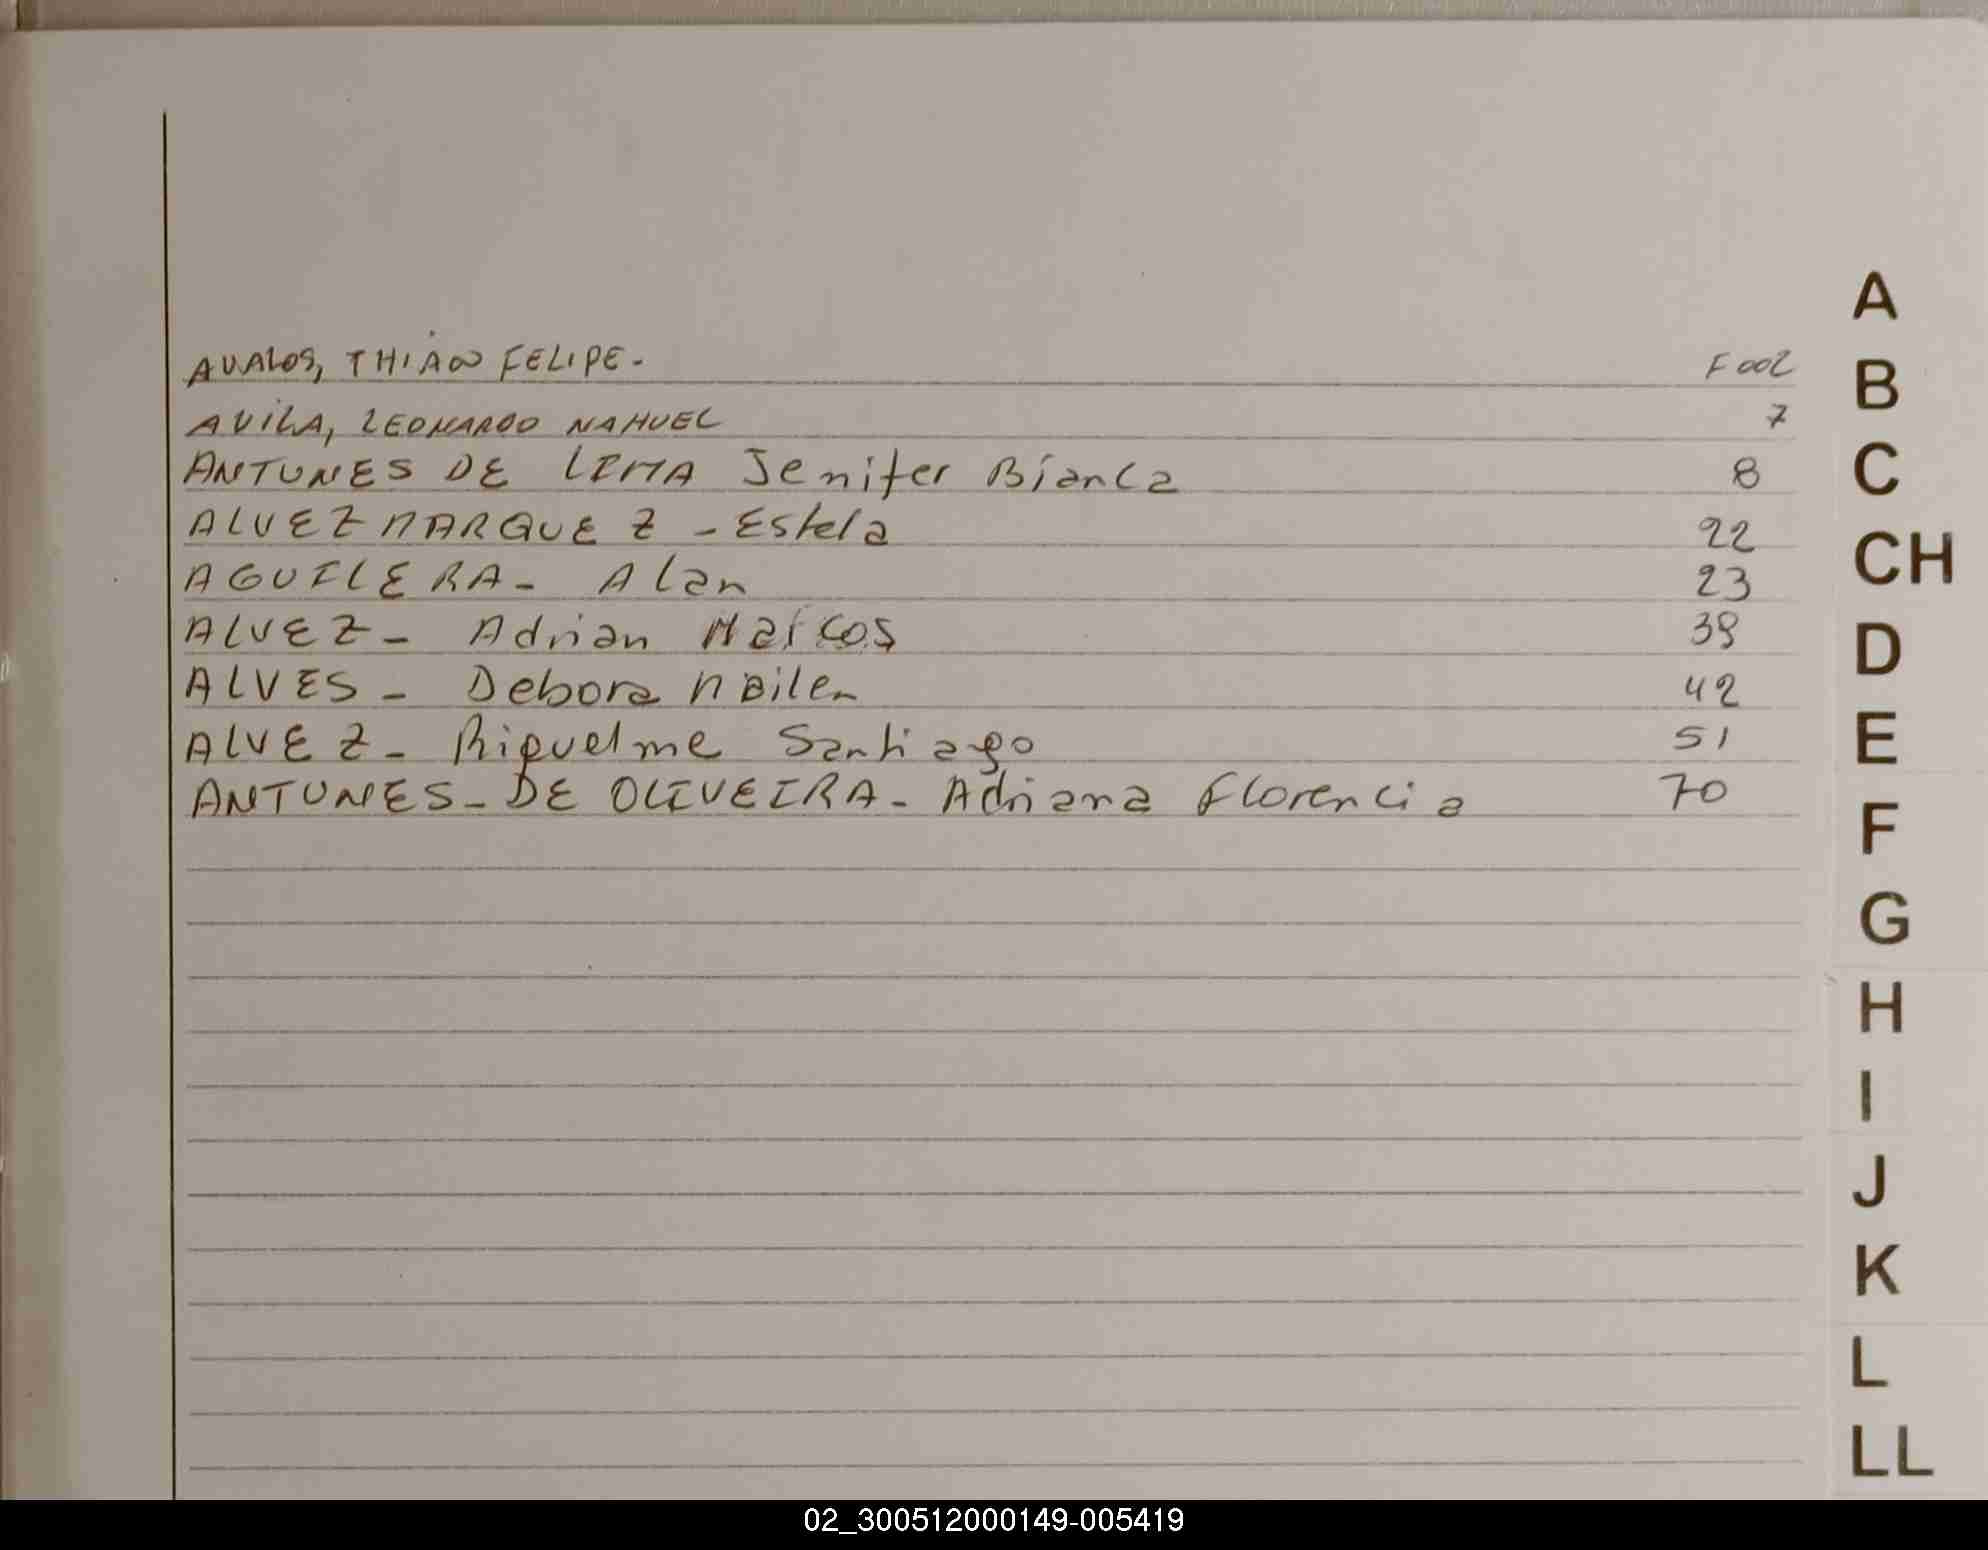 AVALOS, THIAN FELIPE. F 002
AVILA, LEONARDO NAHUEL 7
ANTUNES DE LIMA Jenifer Bianca 8
ALVEZ MARQUEZ - Estela 22
AGUILERA - Alan 23
ALVEZ - Adrian Marcos 39
ALVES - Debora Nailen 42
ALVEZ - Riquelme Santiago 51
ANTUNES - DE OLIVEIRA - Adriana Florencia 70
A
B
C
CH
D
E
F
G
H
I
J
K
L
LL
02_300512000149-005419